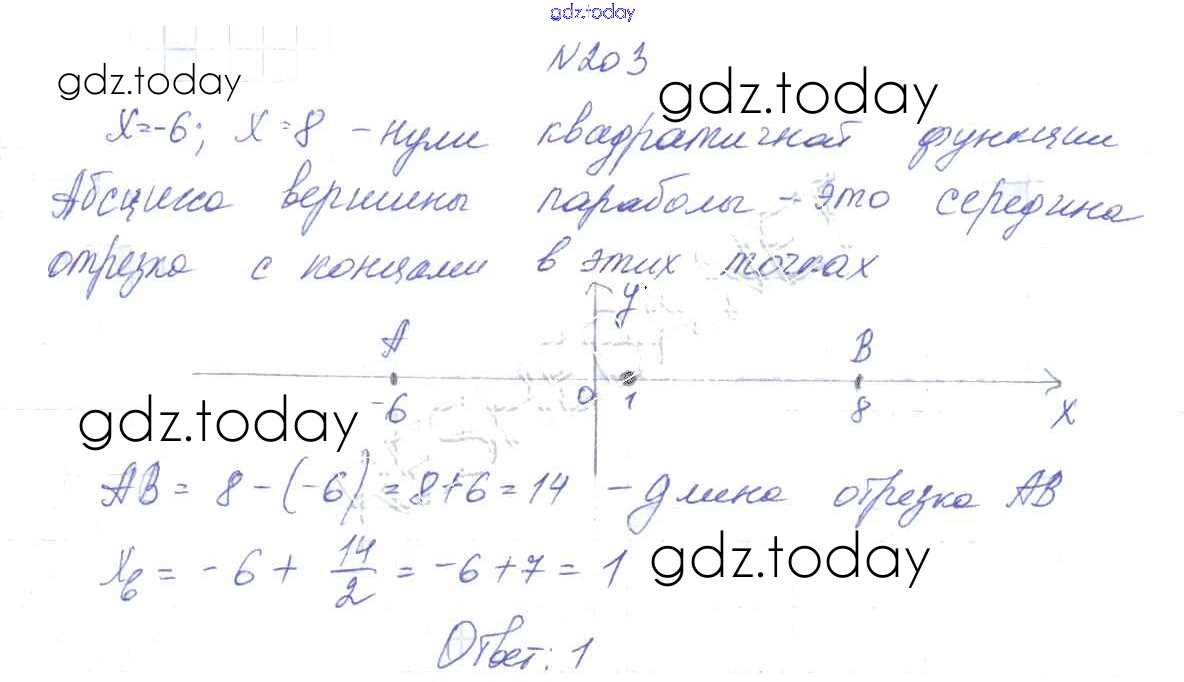 gdz.today
N203
gdz.today gdz.today
x=-6; x=8 - нули квадратичной функции
Абсцисса вершины параболы - это середина
отрезка с концами в этих точках
y
A B
-6 0 1 8 x
gdz.today
AB = 8-(-6)=8+6=14 - длина отрезка AB
xв = -6 + 14/2 = -6+7=1 gdz.today
Ответ: 1